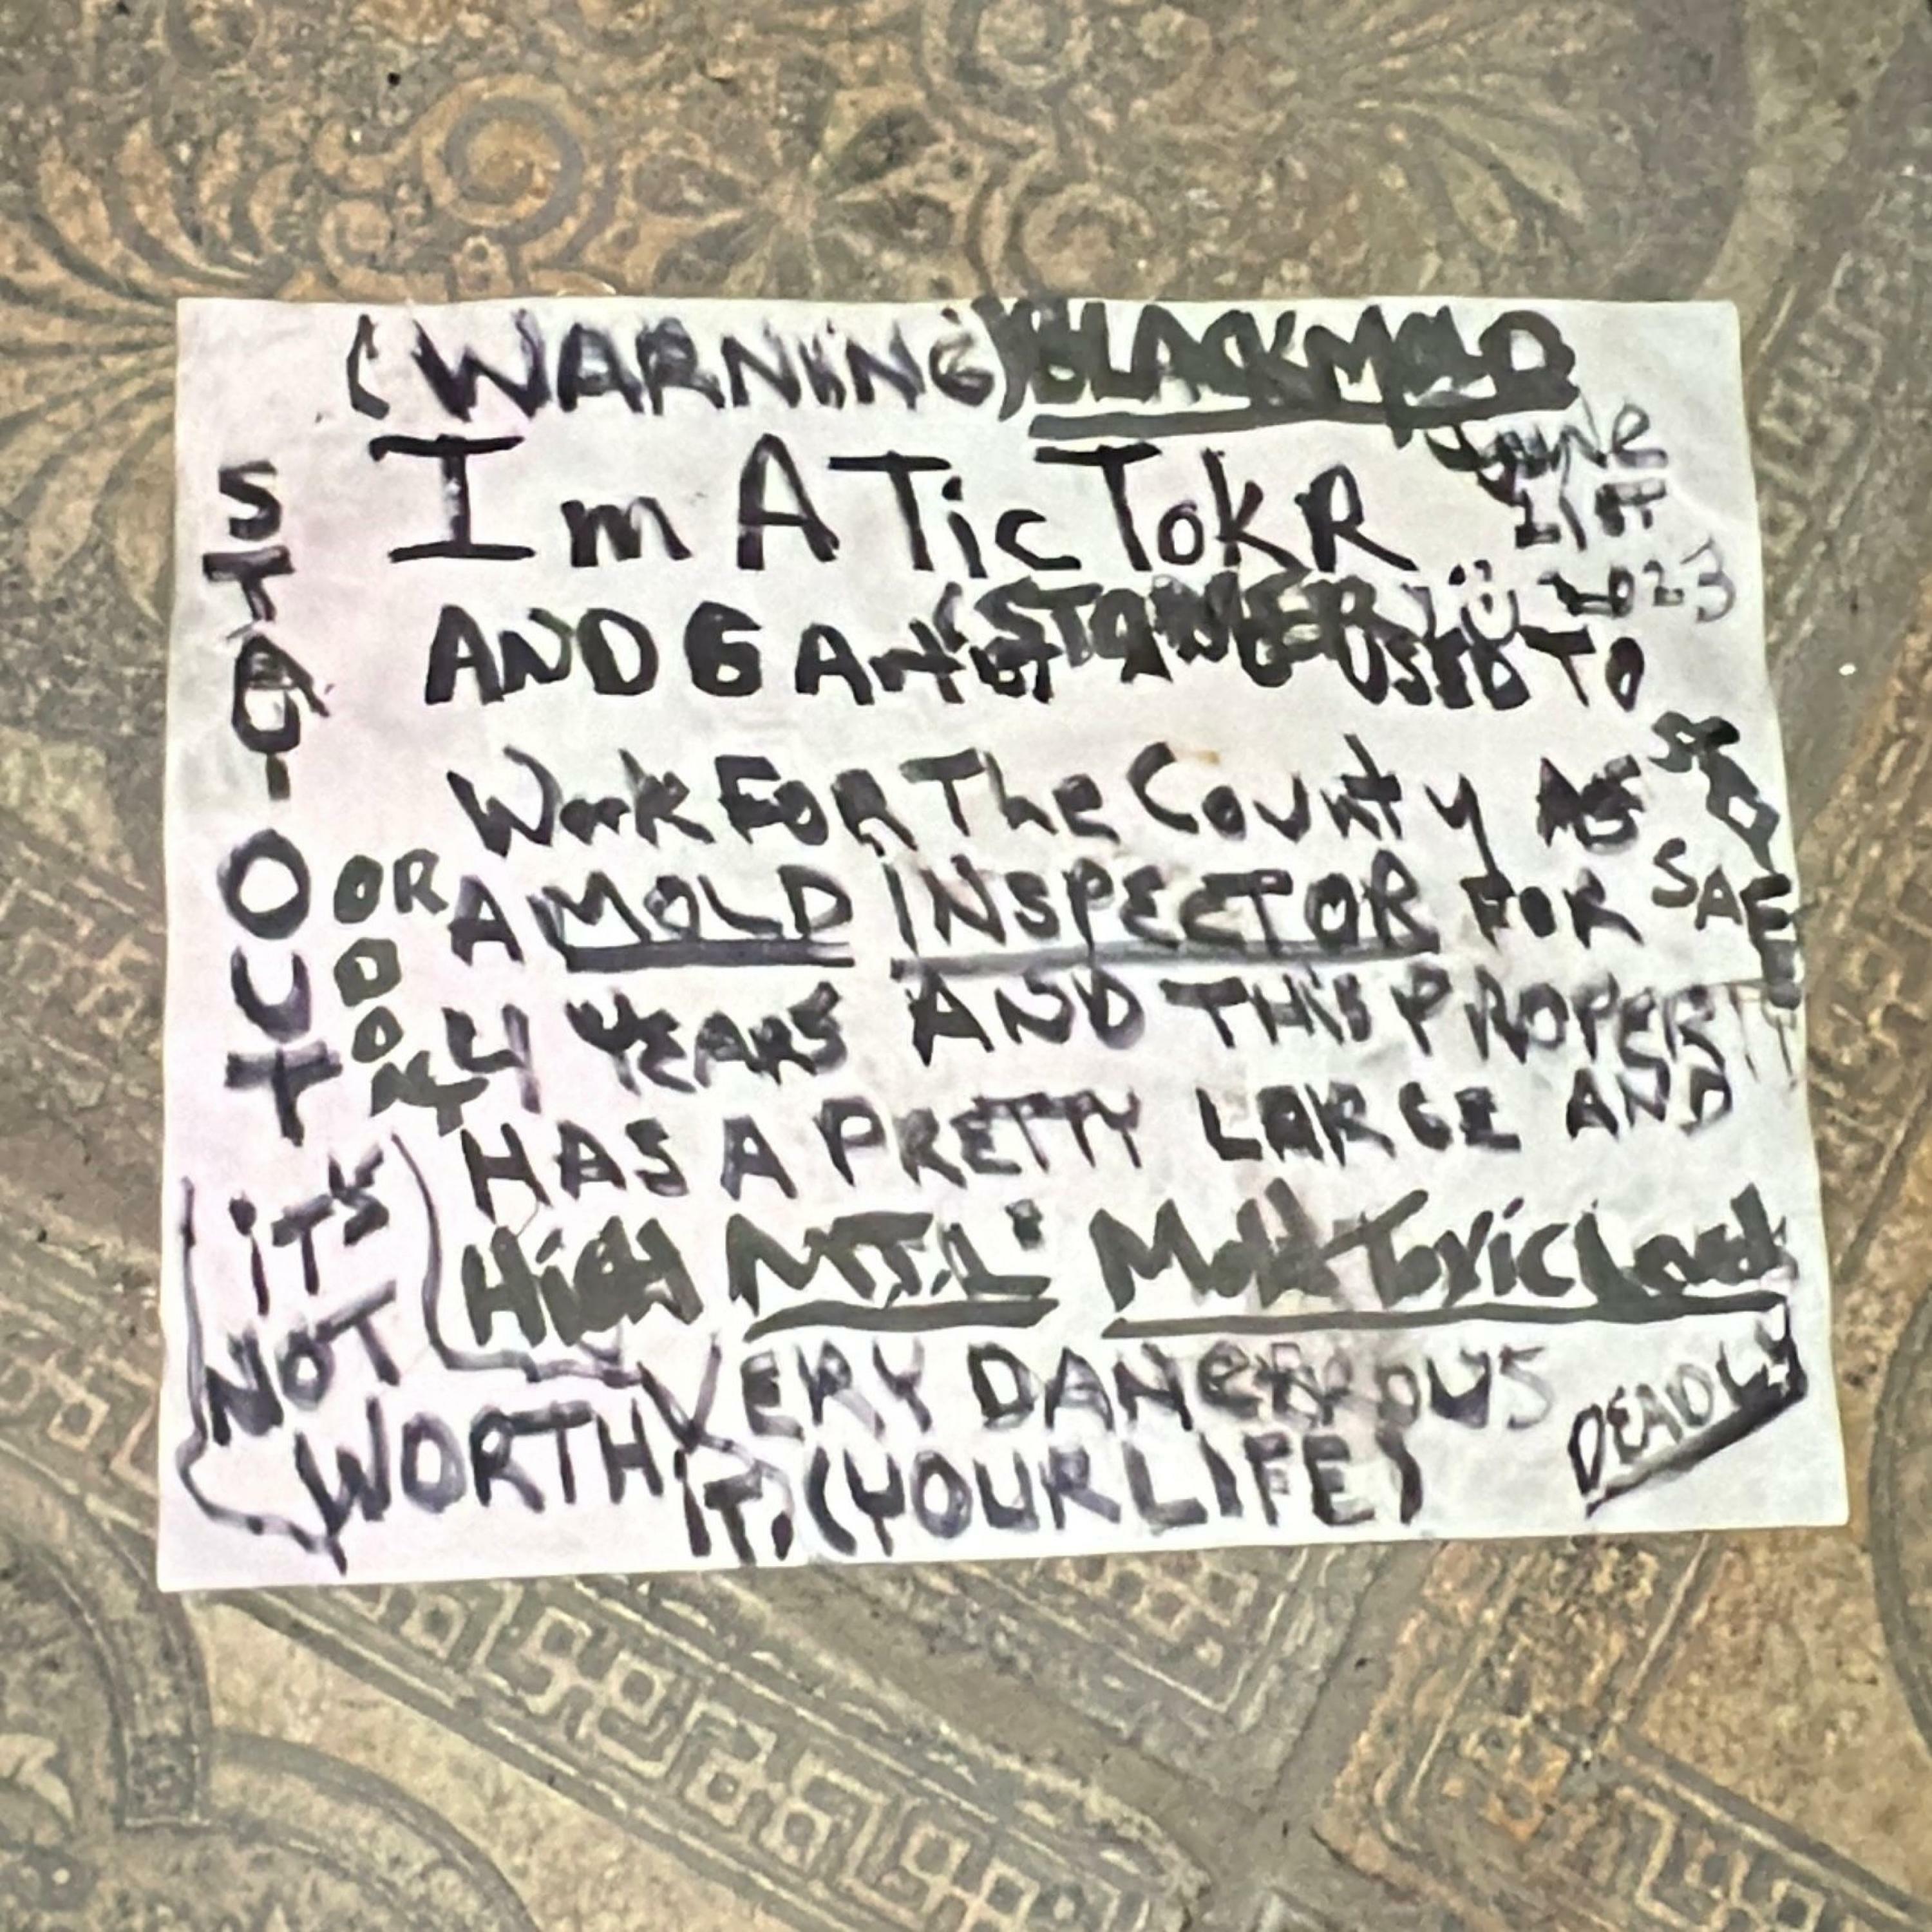 (WARNING) BLACK MOLD
June
1st
2023
Im A Tic TokR
(STONER)
AND USED TO
Work FOR The County AS
A MOLD INSPECTOR FOR
4 YEARS AND THIS PROPERTY
HAS A PRETTY LARGE AND
High M.T.L. Mold Toxic Load
VERY DANGEROUS
DEADLY
STAY
OUT
OR
DONT
SAFE
iT'S
NOT
WORTH
IT. (YOUR LIFE)